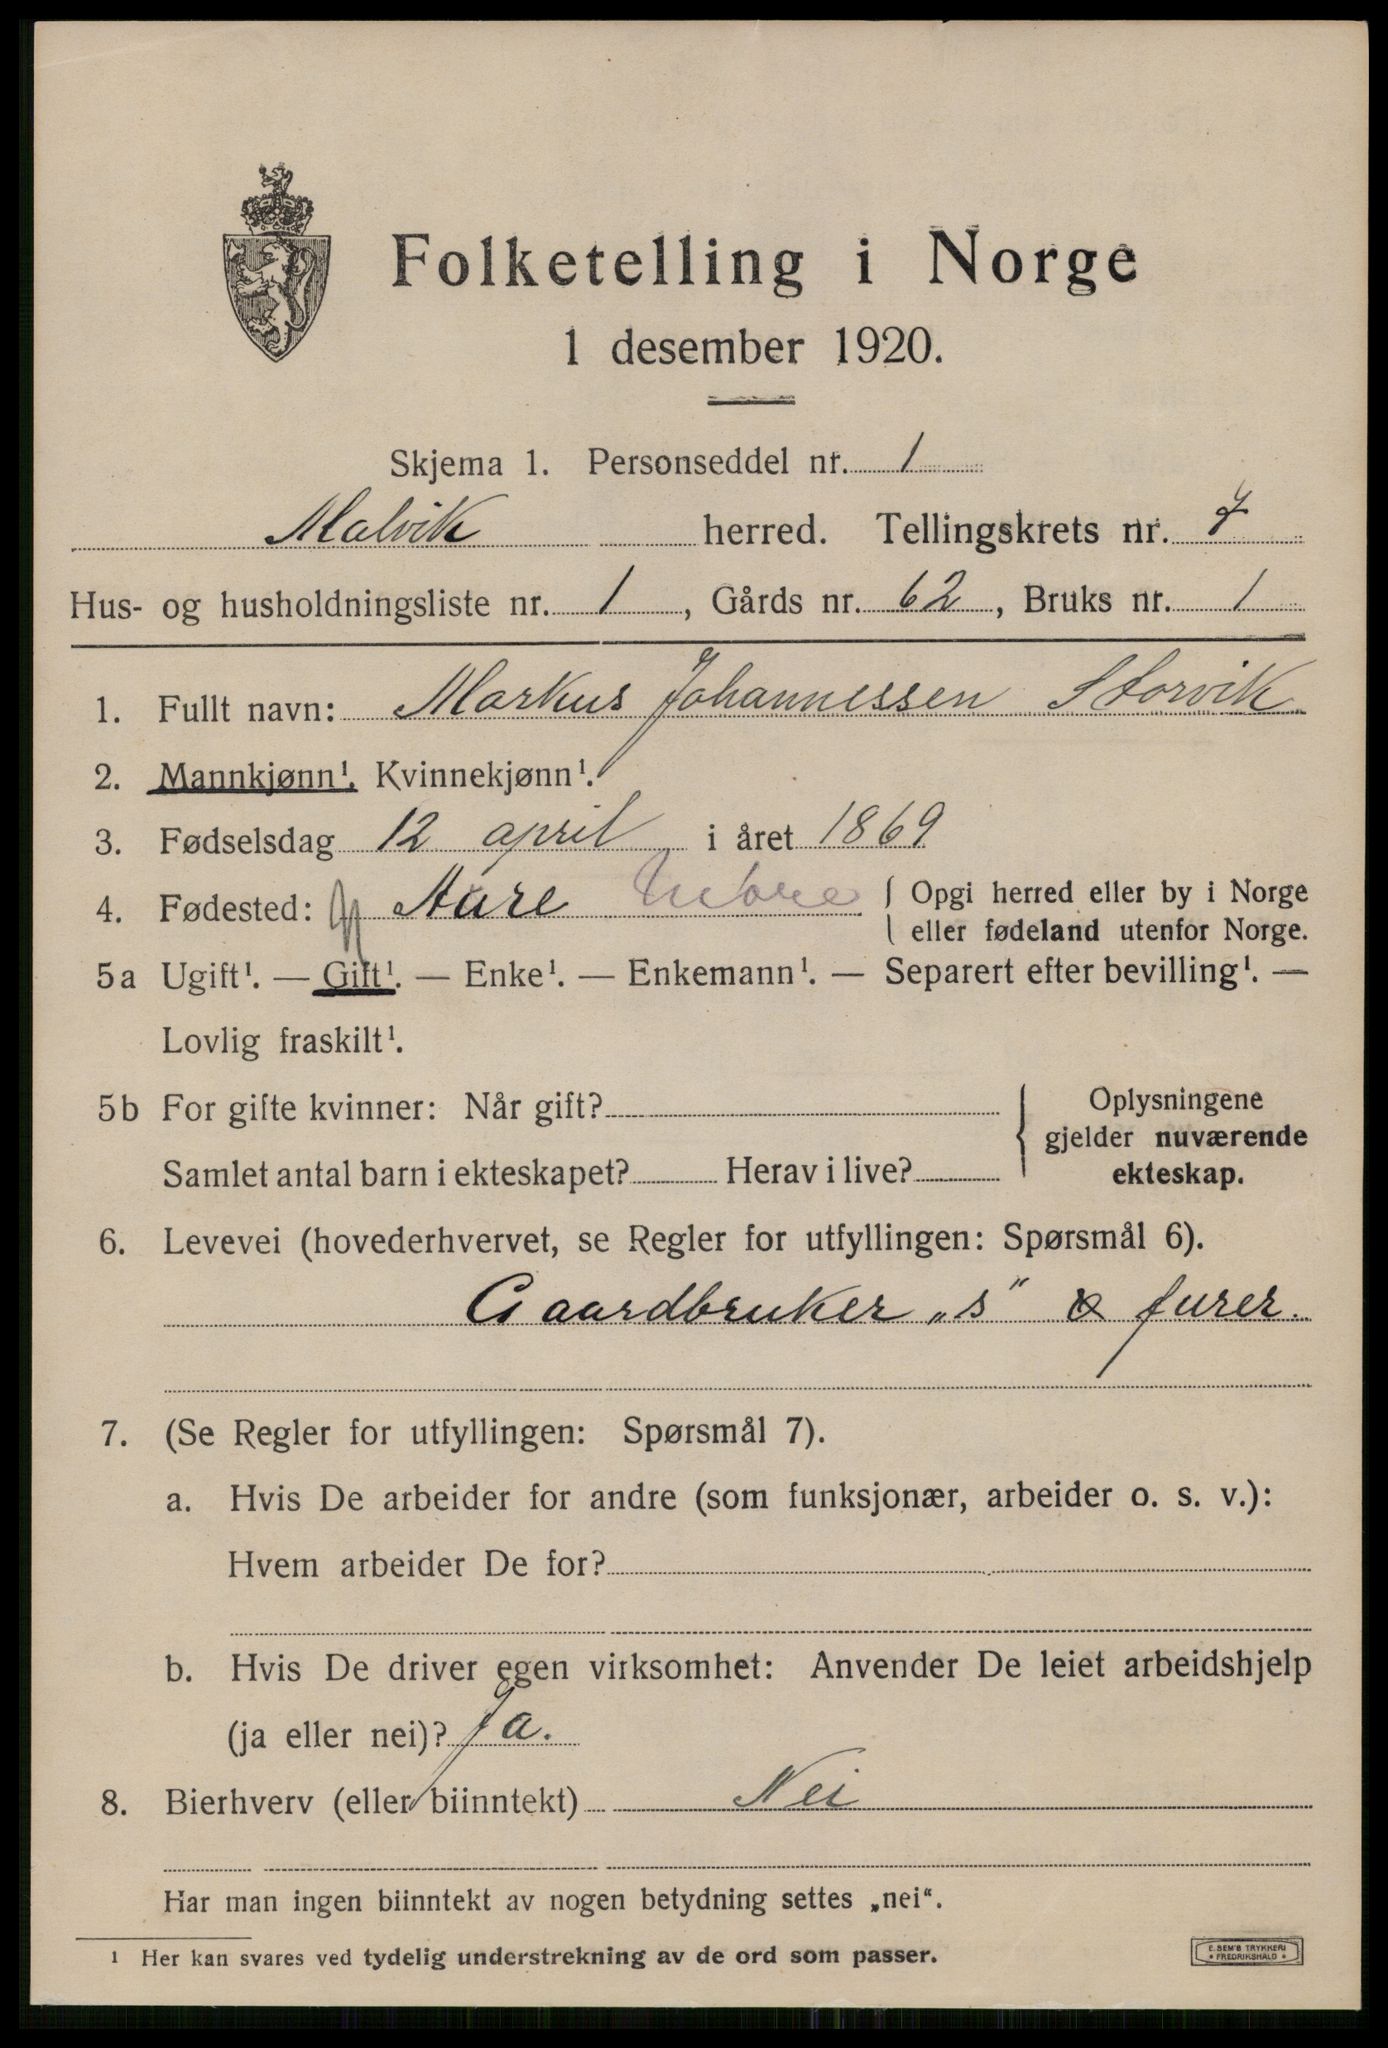 Folketelling i Norge
1 desember 1920.
Skjema 1. Personseddel nr. 1
Malvik herred. Tellingskrets nr. 7
Hus- og husholdningsliste nr. 1, Gårds nr. 62, Bruks nr. 1
1. Fullt navn: Markus Johannessen Storvik
2. Mannkjønn¹. Kvinnekjønn¹.
3. Fødselsdag 12 april i året 1869
4. Fødested: Aure Møre { Opgi herred eller by i Norge
eller fødeland utenfor Norge.
5a Ugift¹. — Gift¹. — Enke¹. — Enkemann¹. — Separert efter bevilling¹. —
Lovlig fraskilt¹.
5b For gifte kvinner: Når gift? { Oplysningene
gjelder nuværende
Samlet antal barn i ekteskapet? Herav i live? ekteskap.
6. Levevei (hovederhvervet, se Regler for utfyllingen: Spørsmål 6).
Gaardbruker „s“ & furer.
7. (Se Regler for utfyllingen: Spørsmål 7).
a. Hvis De arbeider for andre (som funksjonær, arbeider o. s. v.):
Hvem arbeider De for?
b. Hvis De driver egen virksomhet: Anvender De leiet arbeidshjelp
(ja eller nei)? Ja.
8. Bierhverv (eller biinntekt) Nei
Har man ingen biinntekt av nogen betydning settes „nei“.
¹ Her kan svares ved tydelig understrekning av de ord som passer.
E. SEM'S TRYKKERI
• FREDRIKSHALD •